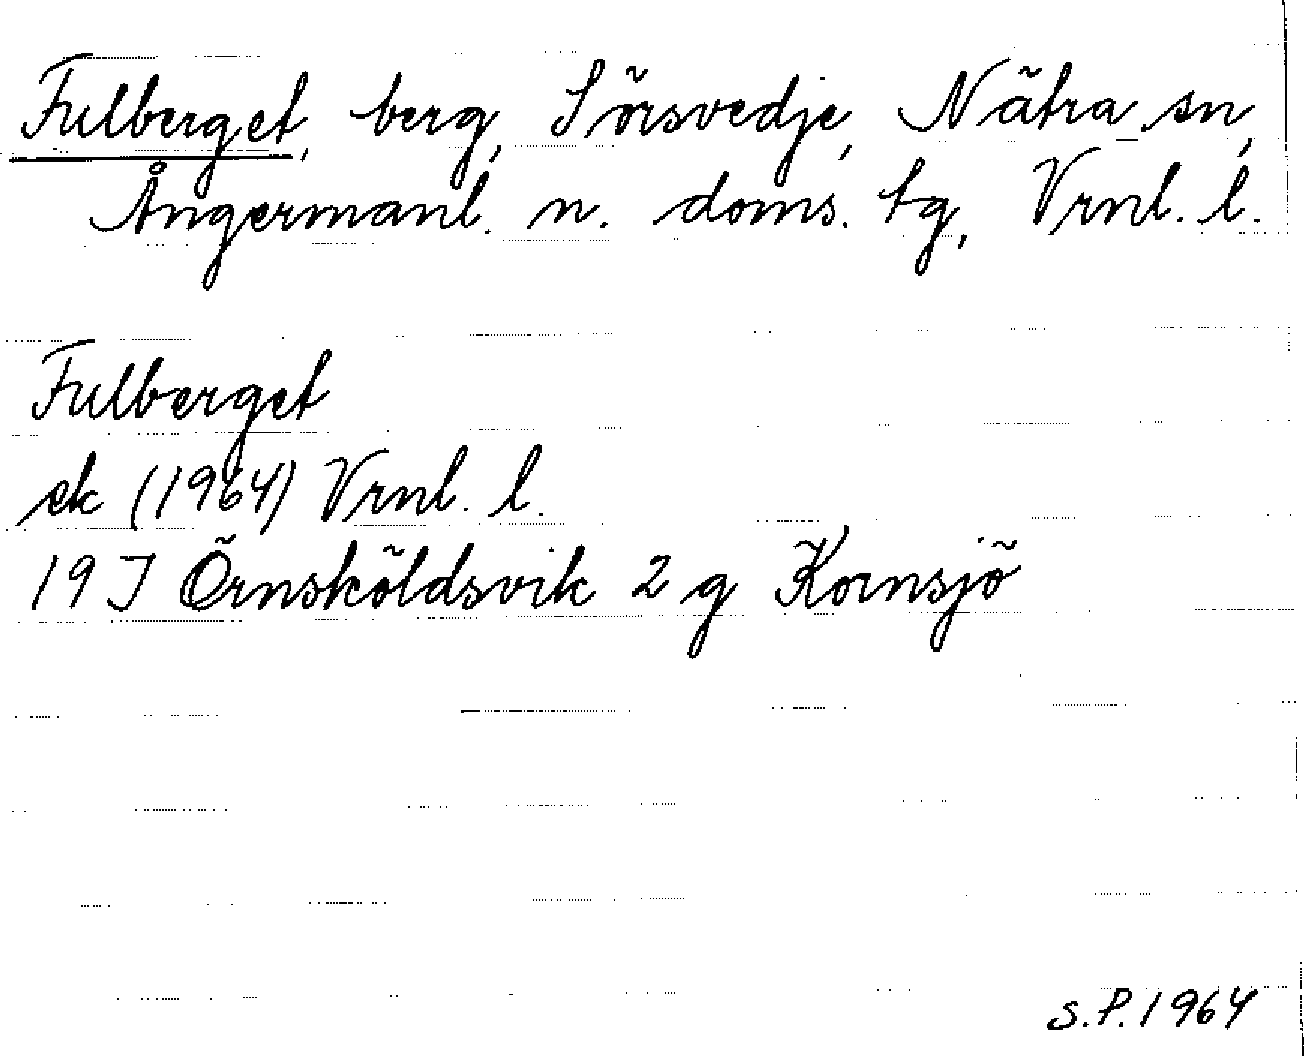 Fulberget, berg, Sörsvedje, Nätra sn,
Ångermanl. n. doms. tg, Vrnl. l.
Fulberget
ek (1964) Vrnl. l.
19 J Örnsköldsvik 2 g Kornsjö
S.P. 1964